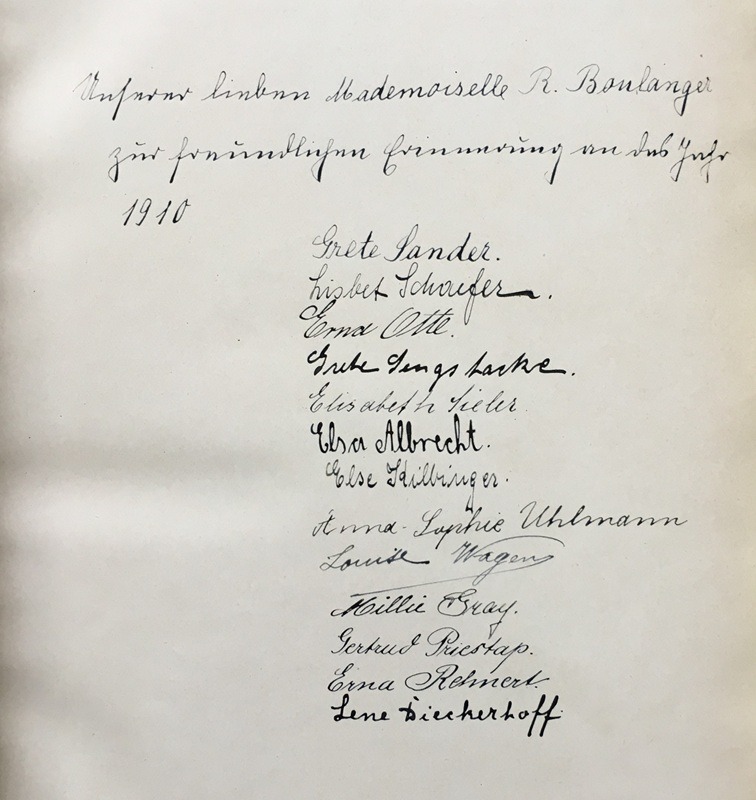 Unserer lieben Mademoiselle R. Boulanger
zur freundlichen Erinnerung an das Jahr
1910
Grete Sander.
Lisbet Schaefer.
Erna Otte.
Grete Sengstacke.
Elisabeth Sieler
Elsa Albrecht.
Else Kilbinger.
Anna-Sophie Uhlmann
Louise Wagen
Millie Gray.
Gertrud Priestap.
Erna Rehnert.
Lene Dieckerhoff